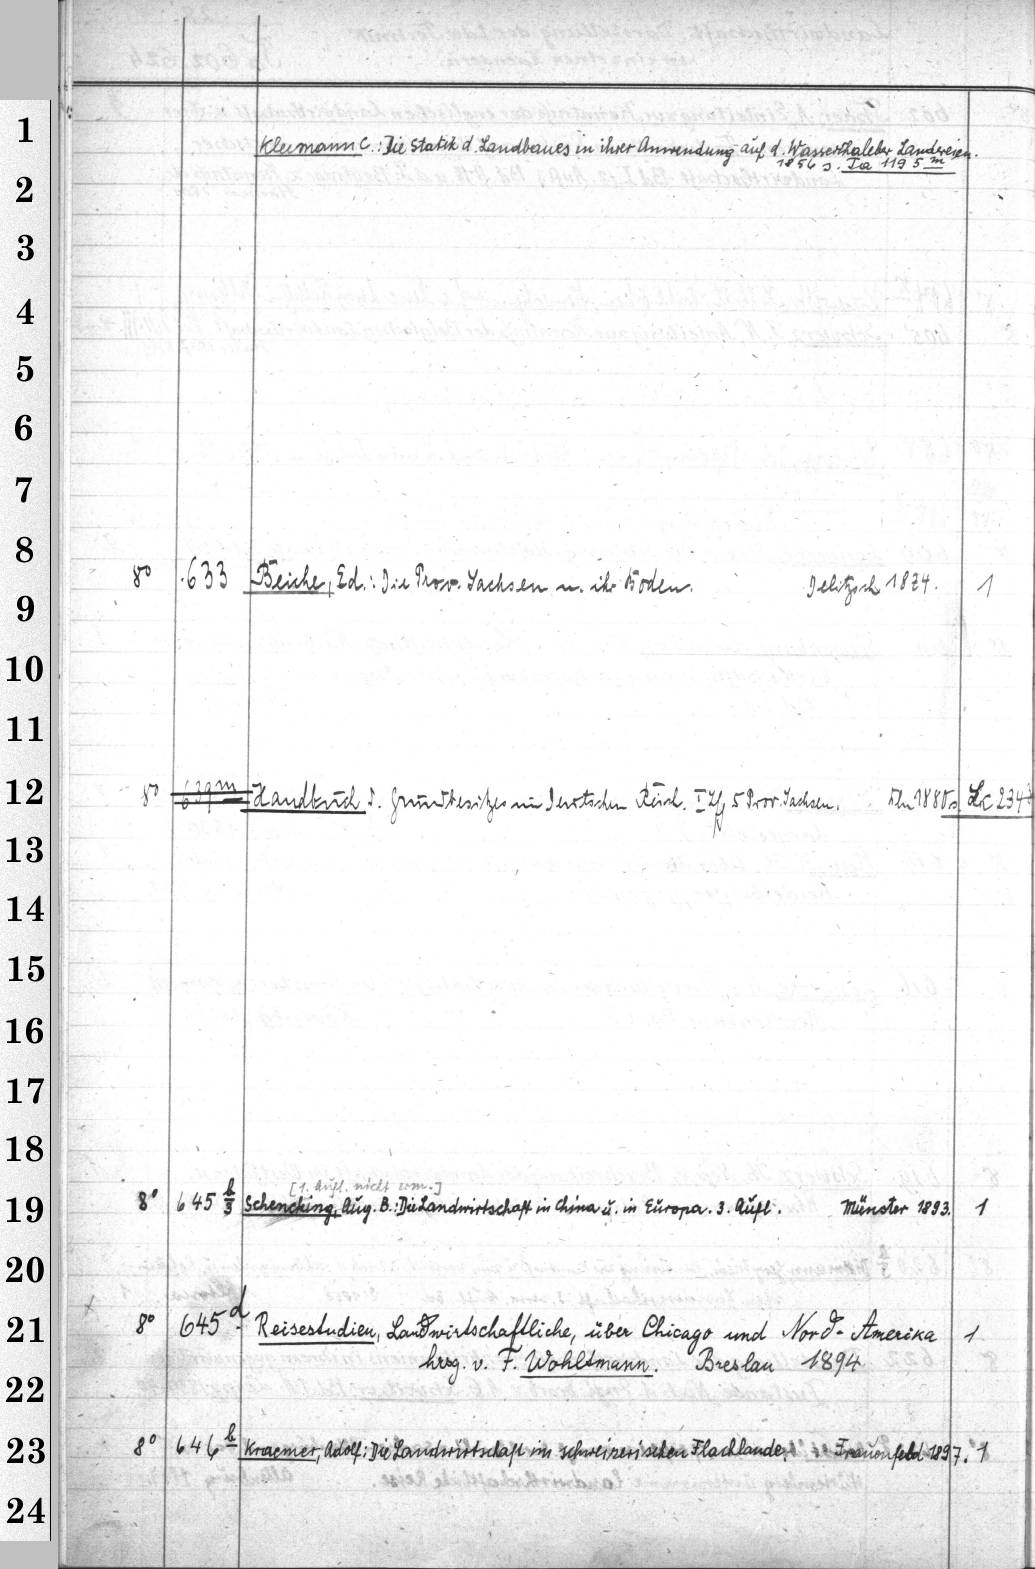 1
Kleemann C.: Die Statik d. Landbaues in ihrer Anwendung auf d. Wasserthaleber Landereien.
1856 s. Ta 1195 m
2
3
4
5
6
7
8
8° 633 Beiche, Ed.: Die Prov. Sachsen u. ihr Boden. Delitzsch 1874. 1
9
10
11
12
8° 639 m Handbuch d. Grundbesitzes im Deutschen Reich. I Lfg 5 Prov. Sachsen. Bln 1880 s. Lc 234
13
14
15
16
17
18
[1. Aufl. nicht vorh.]
19
8° 645 b/3 Schencking, Aug. B.: Die Landwirtschaft in China u. in Europa. 3. Aufl. Münster 1893. 1
20
21
8° 645 d Reisestudien, Landwirtschaftliche, über Chicago und Nord-Amerika 1
hrsg. v. F. Wohltmann. Breslau 1894
22
23
8° 646 b Kraemer, Adolf: Die Landwirtschaft im schweizerischen Flachlande. Frauenfeld 1897. 1
24